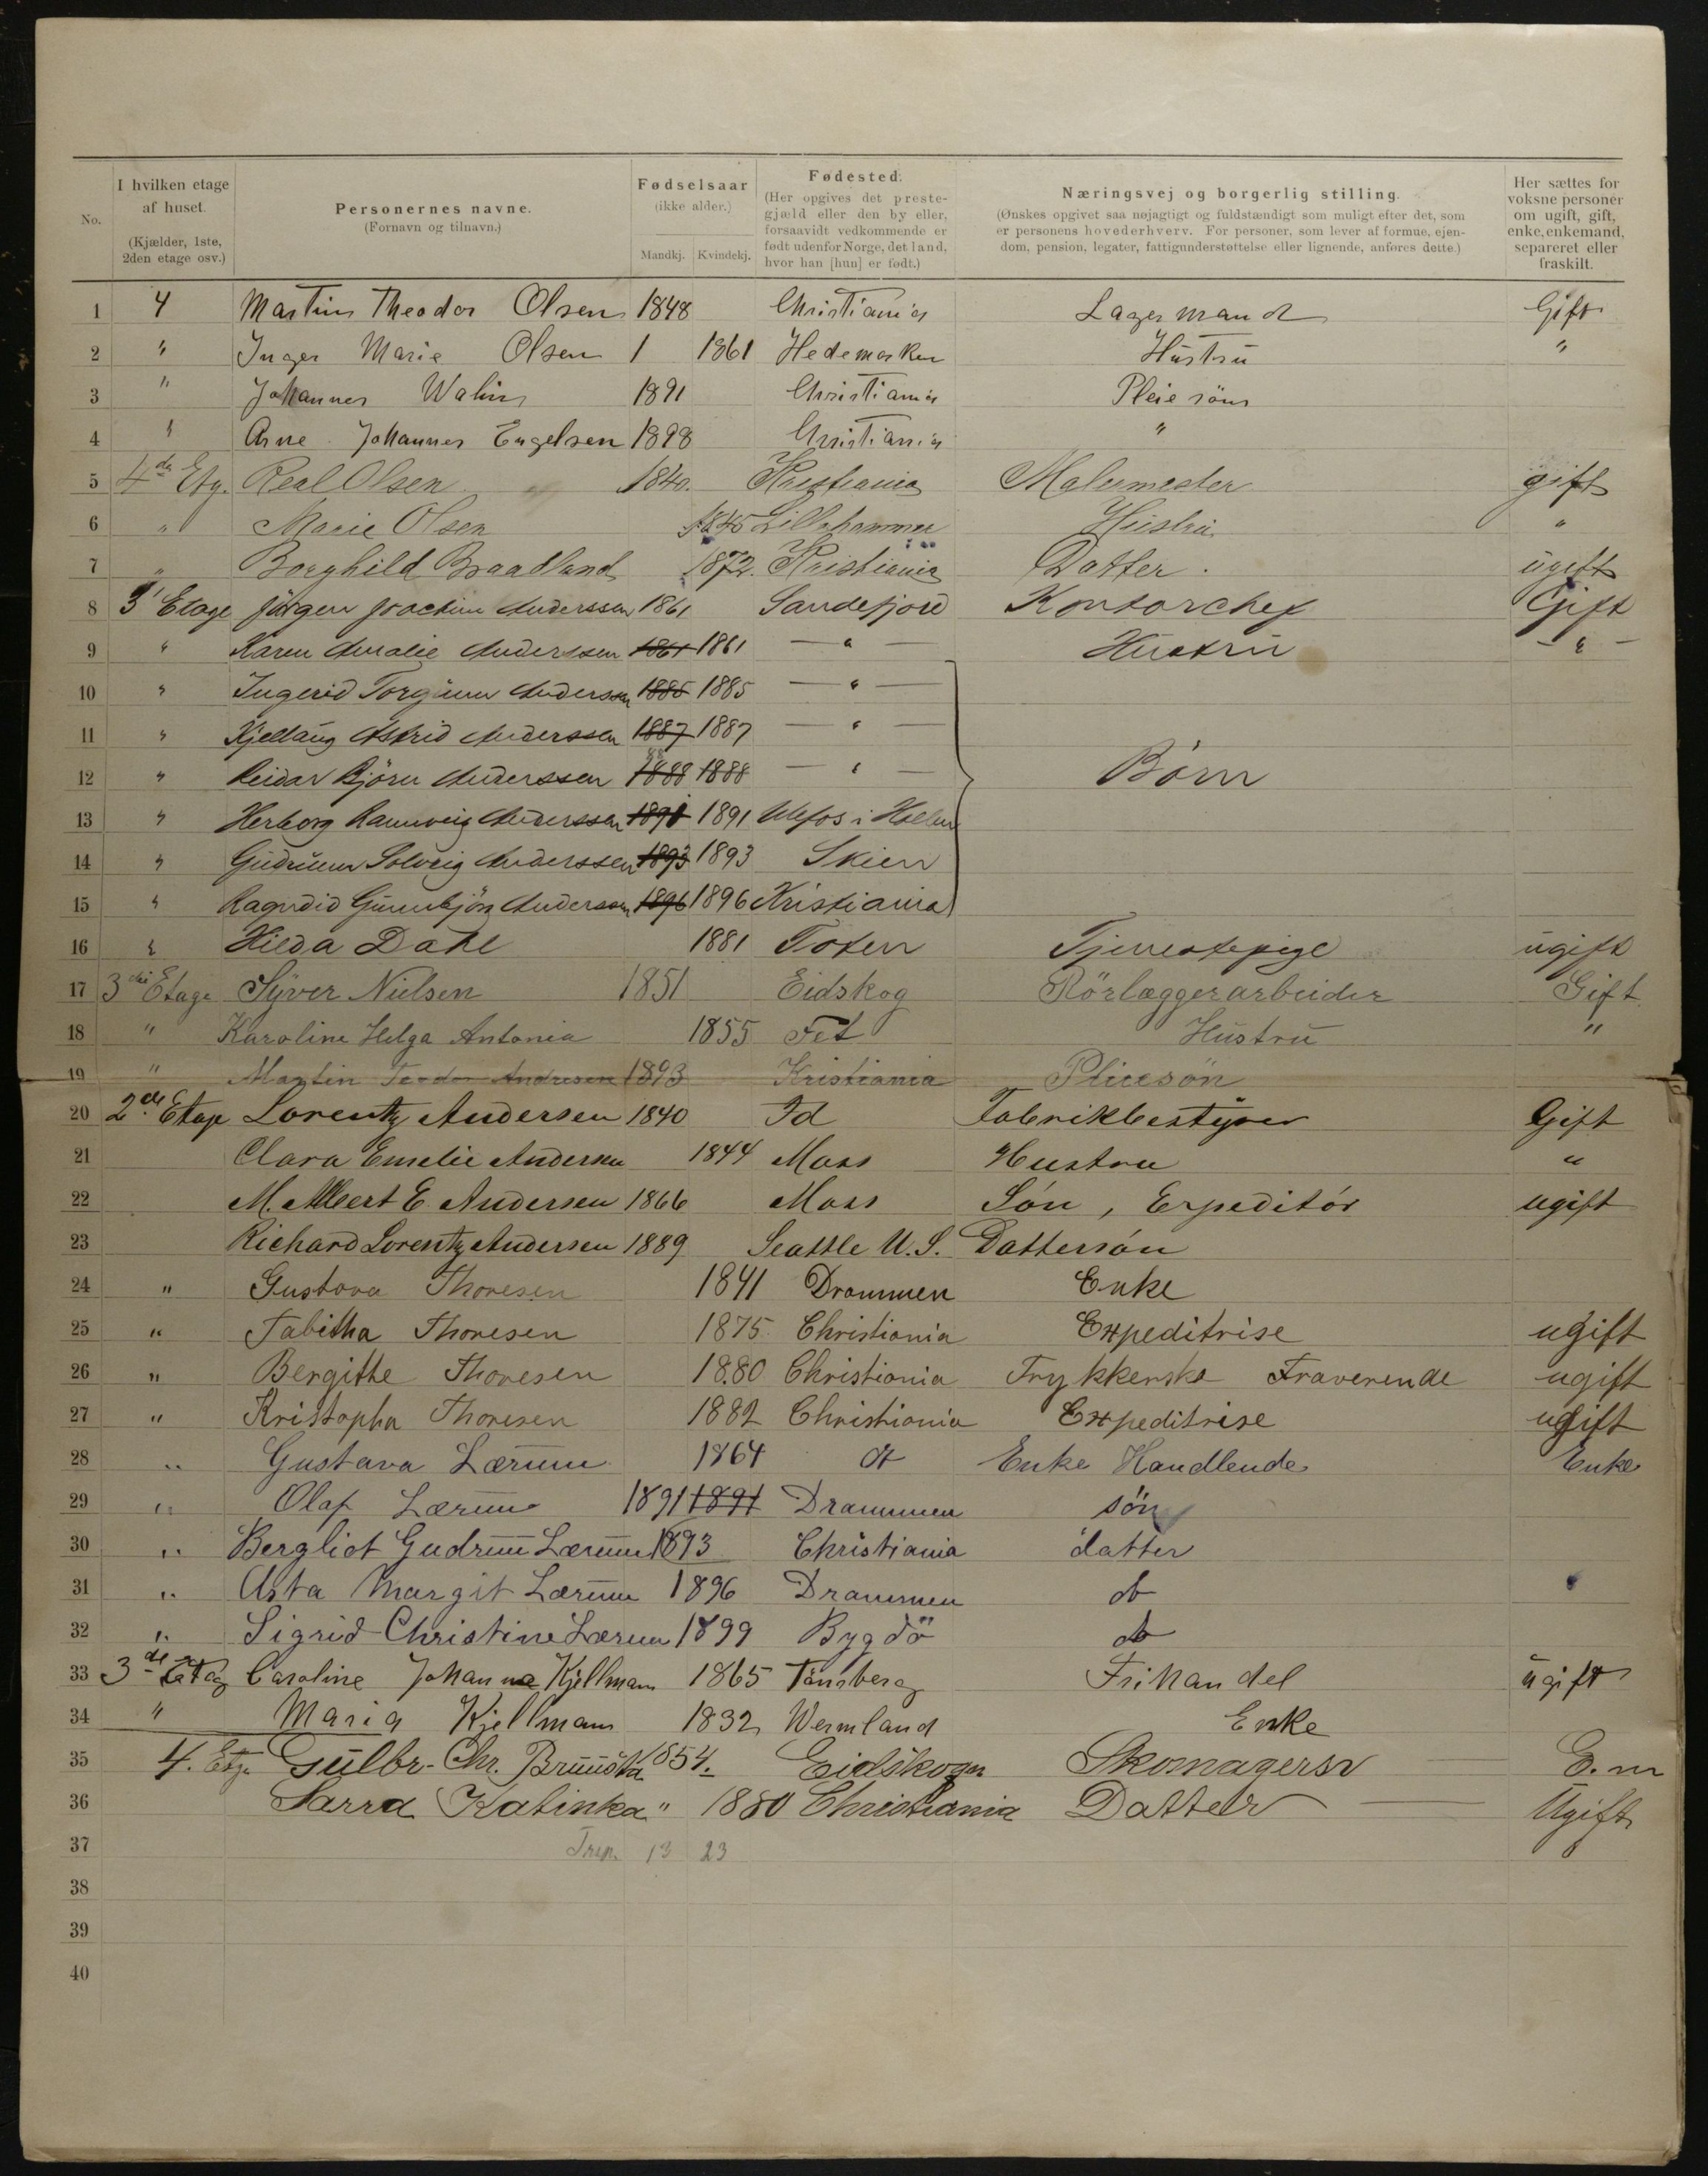 No. I hvilken etage af huset. (Kjælder, 1ste, 2den etage osv.) Personernes navne. (Fornavn og tilnavn.) Fødselsaar (ikke alder.) Mandkj. Kvindekj. Fødested. (Her opgives det prestegjæld eller den by eller, forsaavidt vedkommende er født udenfor Norge, det land, hvor han [hun] er født.) Næringsvej og borgerlig stilling. (Ønskes opgivet saa nøjagtigt og fuldstændigt som muligt efter det, som er personens hovederhverv. For personer, som lever af formue, ejendom, pension, legater, fattigunderstøttelse eller lignende, anføres dette.) Her sættes for voksne personer om ugift, gift, enke, enkemand, separeret eller fraskilt.
1 4 Martin Theodor Olsen 1848 Christiania Lagermand Gift
2 " Inger Marie Olsen 1 1861 Hedemarken Hüstrü "
3 " Johannes Walin 1891 Christiania Pleiesöns
4 " Arne Johannes Engelsen 1898 Christiania "
5 4de Etg. Real Olsen 1840. Kristiania Malermester gift
6 " Marie Olsen 1845 Lillehammer Hüstrü "
7 " Borghild Braadland 1872. Kristiania Datter. ügift
8 3' Etage Jürgen Joachim Anderssen 1861 Sandefjord Kontorchef Gift
9 " Karen Amalie Anderssen 1861 1861 — " — Hüstrü — " —
10 " Ingerid Torgünn Anderssen 1885 1885 — " —
11 " Kjellaüg Astrid Anderssen 1887 1887 — " —
12 " Reidar Björn Anderssen 88 1888 1888 — " — Börn
13 " Herborg Rannveig Anderssen 1891 1891 Ulefos i Hollen
14 " Güdrünn Solveig Anderssen 1893 1893 Skien
15 " Ragndid Günnbjörg Anderssen 1896 1896 Kristiania
16 " Hilda Dahl 1881 Toten Tjenestepige ügift
17 3die Etage Syver Nielsen 1851 Eidskog Rörlæggerarbeider Gift
18 " Karoline Helga Antonia 1855 Fet Hüstrü "
19 " Martin Teodor Andresen 1893 Kristiania Pliesön
20 2de Etage Lorentz Andersen 1840 Id Fabrikbestyrer Gift
21 Clara Emelie Andersen 1844 Moss Hustru "
22 M. Albert E. Andersen 1866 Moss Sön, Expeditör ugift
23 Richard Lorentz Andersen 1889 Seattle U.S. Dattersön
24 " Gustava Thoresen 1841 Drammen Enke
25 " Tabitha Thoresen 1875 Christiania Expeditrise ugift
26 " Bergitte Thoresen 1880 Christiania Trykkerske Fraverende ugift
27 " Kristopha Thoresen 1882 Christiania Expeditrise ugift
28 " Gustava Lærum 1864 do Enke Handlende Enke
29 " Olaf Lærum 1891 1891 Drammen sön
30 " Bergliot Gudrun Lærum 1893 Christiania datter
31 " Asta Margit Lærum 1896 Drammen do
32 " Sigrid Christine Lærum 1899 Bygdö do
33 3de Etag Caroline Johanne Kjellman 1865 Tönsberg Frihandel ügift
34 " Maria Kjellman 1832 Wermland Enke
35 4. Etg. Gülbr. Chr. 1854. Eidskogen Skomagersv — E.m
36 Sarra Katinka " 1880 Christiania Datter — Ugift
37 13 23
38
39
40